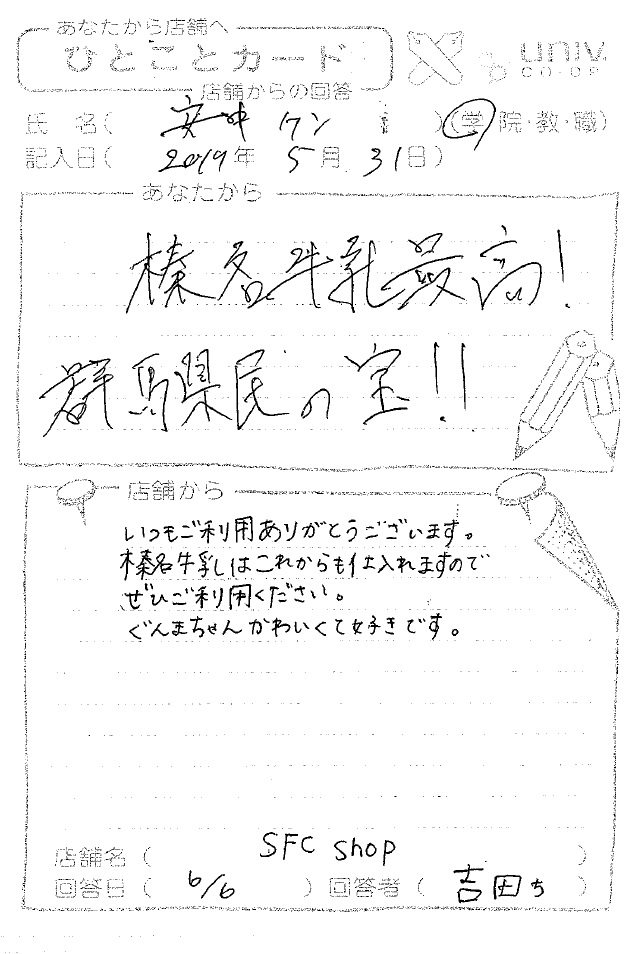 あなたから店舗へ
ひとことカード
店舗からの回答
univ.
CO-OP
氏 名( 安中 ケン )(学・院・教・職)
記入日( 2019年 5月 31日)
あなたから
榛名牛乳最高!
群馬県民の宝!!
店舗から
いつもご利用ありがとうございます。
榛名牛乳はこれからも仕入れますので
ぜひご利用ください。
ぐんまちゃんかわいくて好きです。
店舗名( SFC shop )
回答日( 6/6 ) 回答者( 吉田ち )